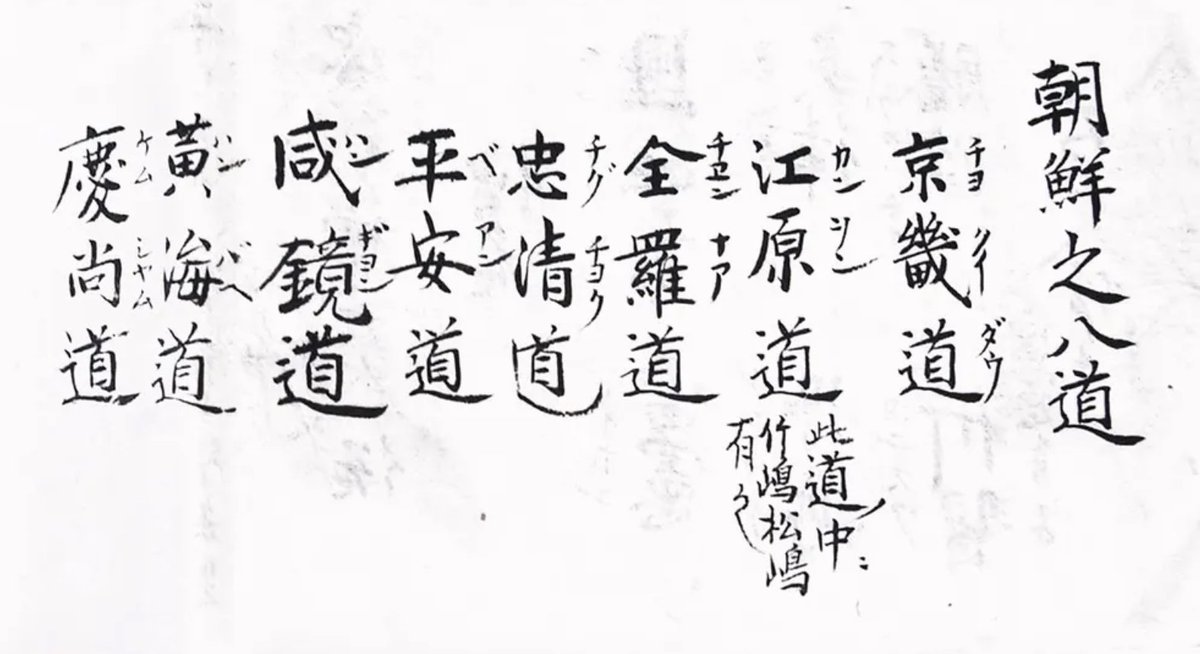 朝鮮之八道
チヨクイーダウ
京畿道
カン
江原道
此道中ニ
竹嶋松嶋
有之
チヱンナア
全羅道
チグチヨク
忠清道
ベアン
平安道
ハンギヨン
咸鏡道
ハンバヘ
黄海道
ケムシヤム
慶尚道